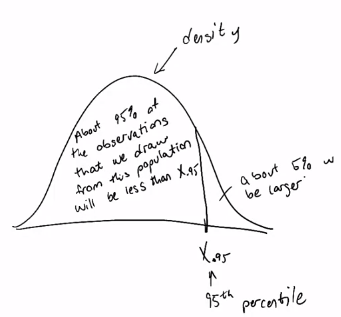 density
About 95% of
the observations
that we draw
from this population
will be less than X.95
about 5% w
be larger
X.95
95th percentile